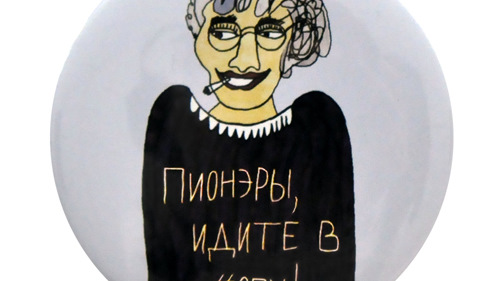 ПИОНЭРЫ,
ИДИТЕ В